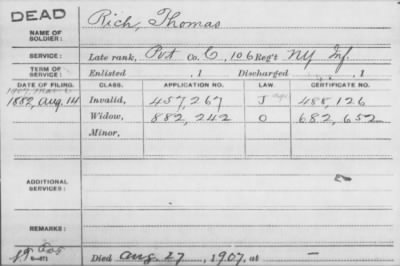 DEAD
Rich, Thomas
NAME OF SOLDIER:
SERVICE: Late rank, Pvt Co. C, 106 Reg't NY Inf.
TERM OF SERVICE: Enlisted , 1 Discharged , 1
DATE OF FILING. CLASS. APPLICATION NO. LAW CERTIFICATE NO.
1882, Aug. 14 Invalid, 457,267 J 488,126
Widow, 882,242 O 682,652
Minor,
ADDITIONAL SERVICES:
REMARKS:
Died Aug. 27, 1907, at —